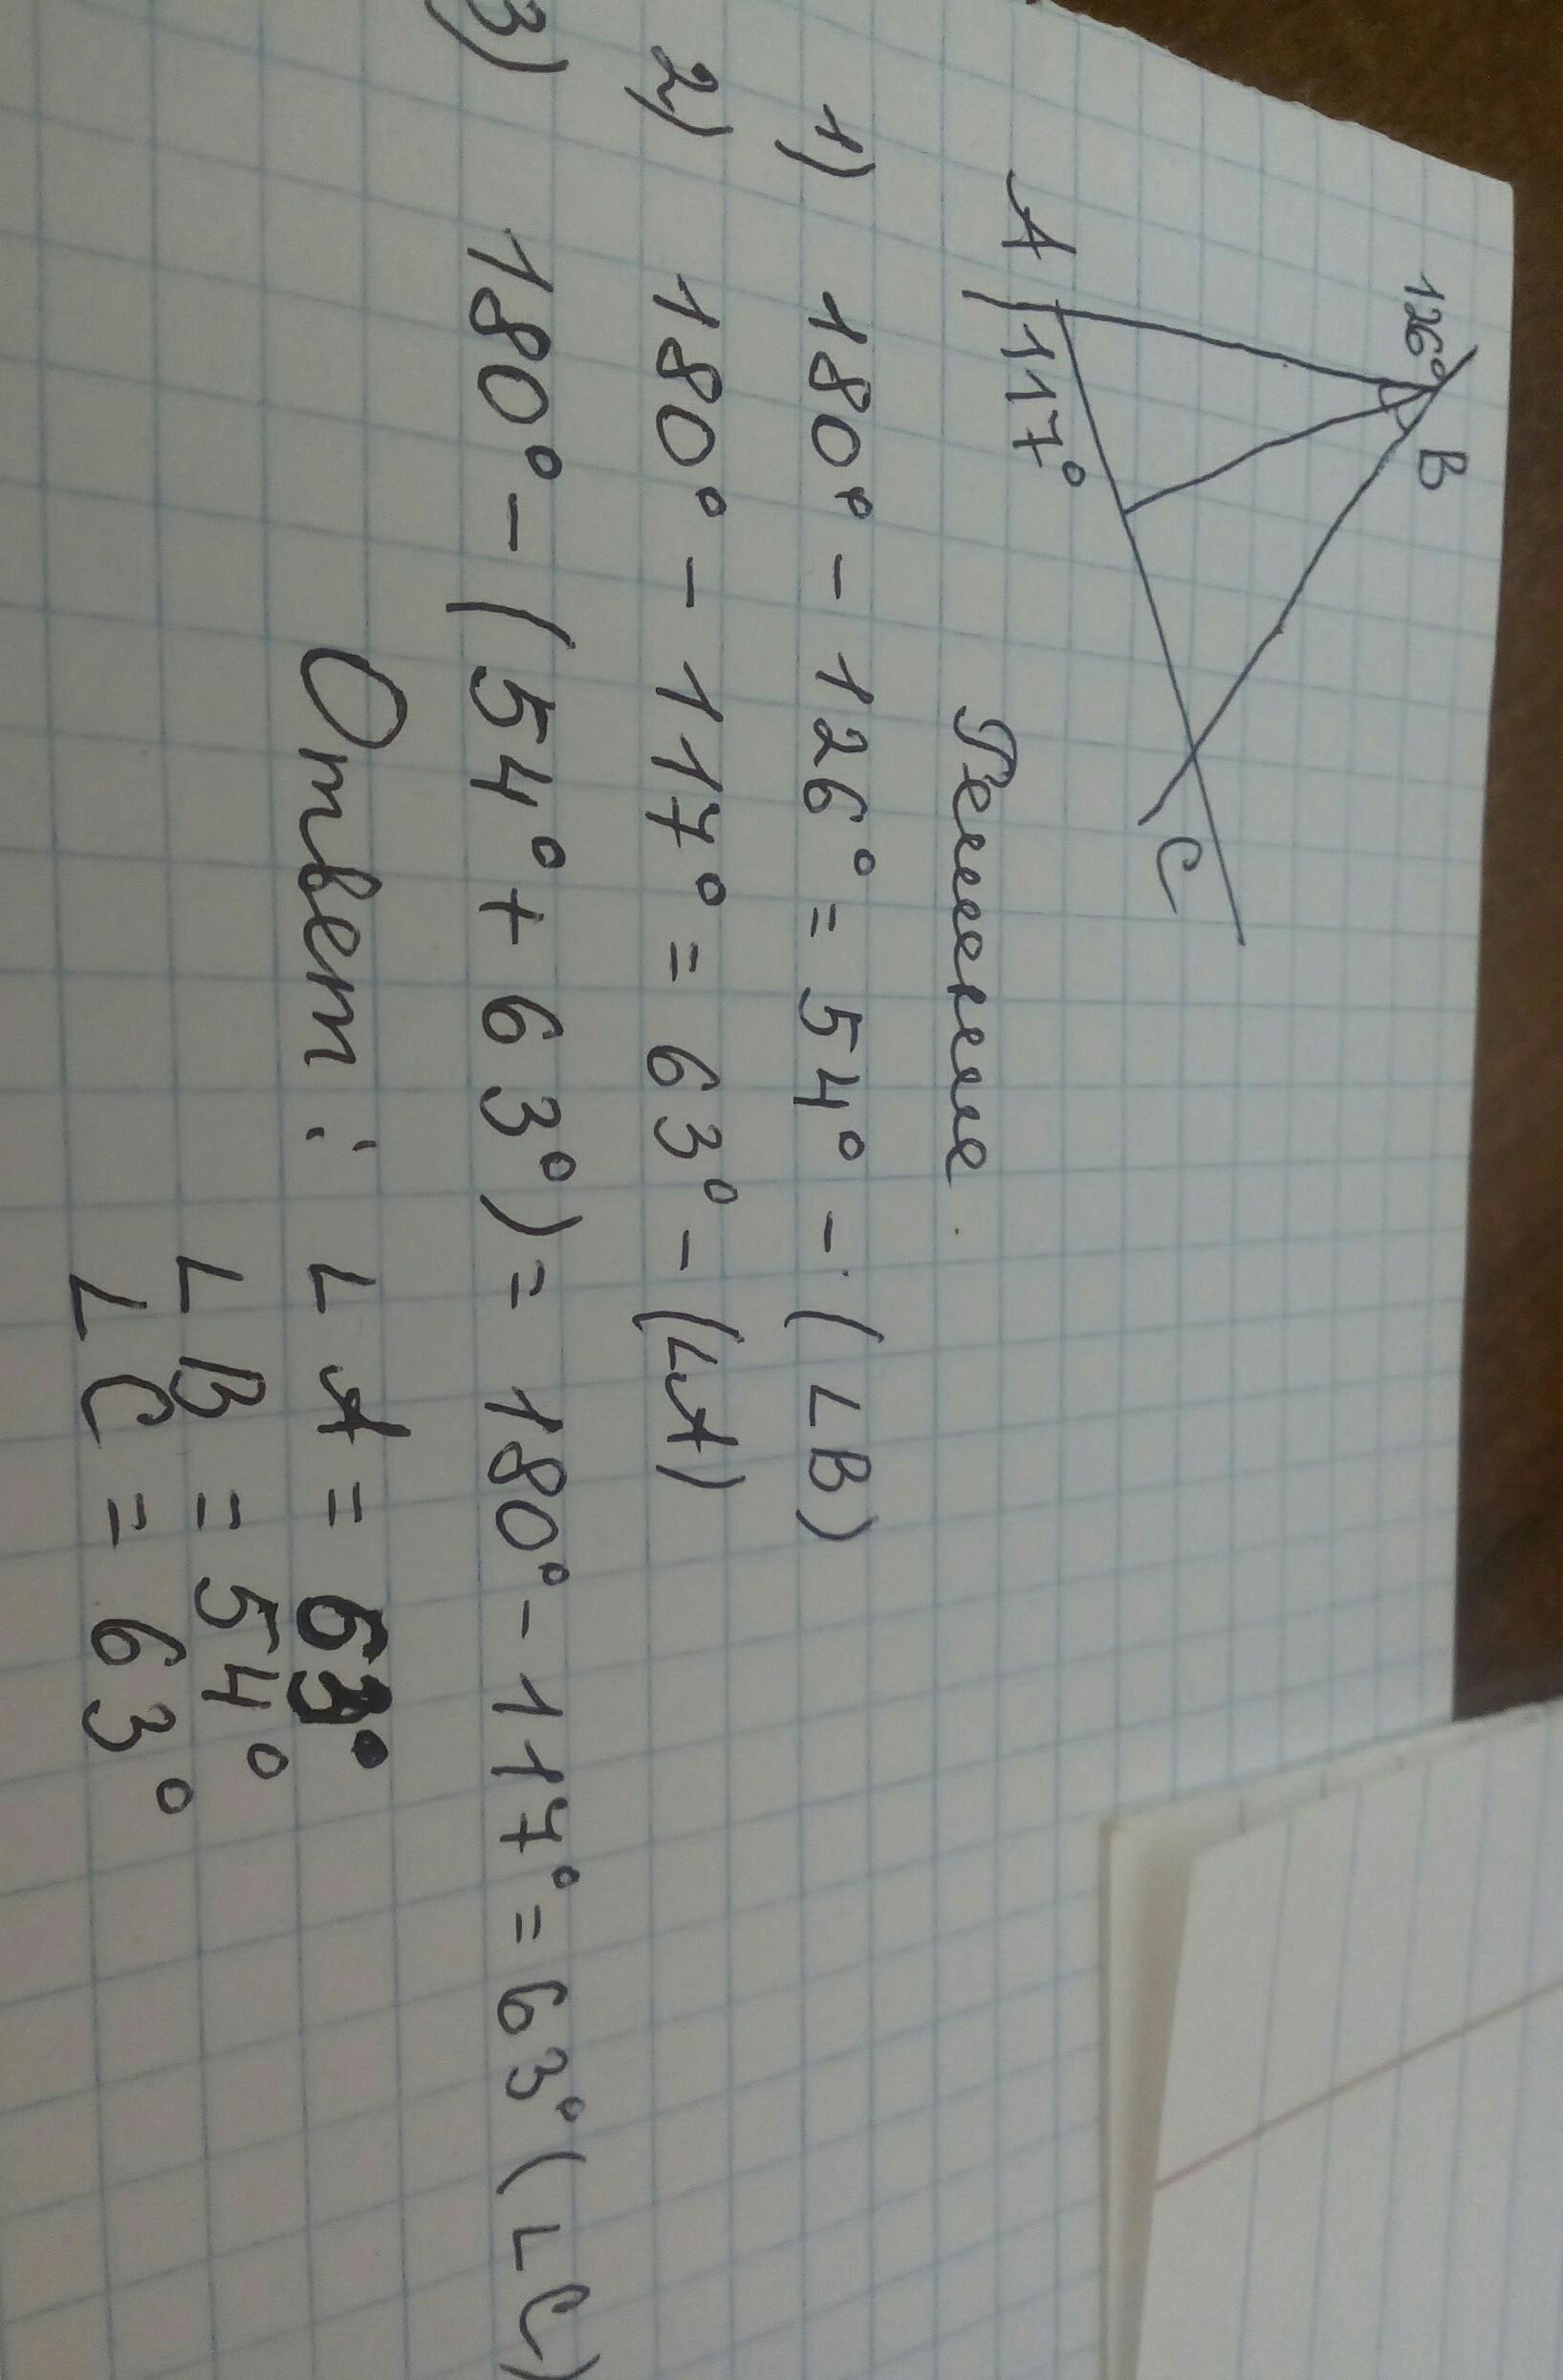 126°
B
A
117°
C
Решение.
1) 180° - 126° = 54° - (∠B)
2) 180° - 117° = 63° - (∠A)
3) 180° - (54° + 63°) = 180° - 117° = 63° (∠C)
Ответ: ∠A = 63°
∠B = 54°
∠C = 63°